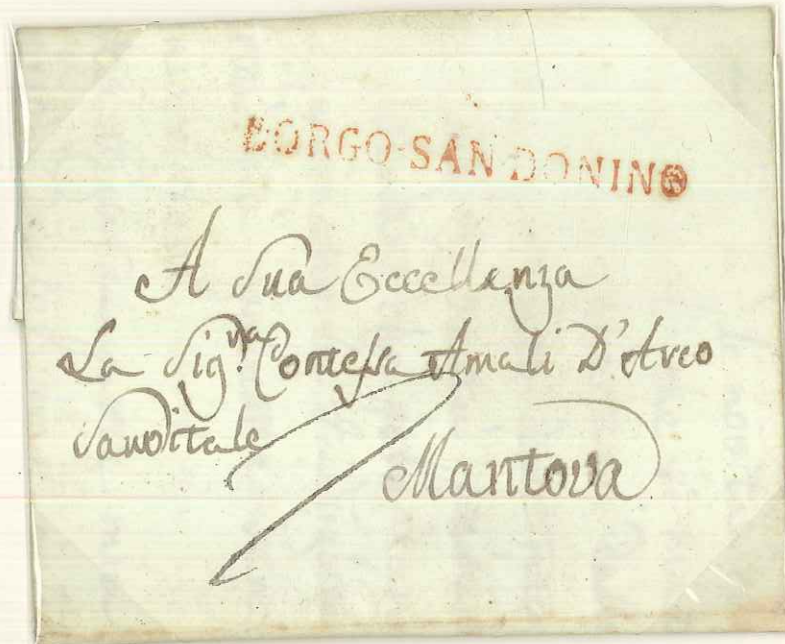 BORGO-SAN-DONINO
A Sua Eccellenza
La Sig.ra Contessa Amali D'Arco
Sanvitale
Mantova